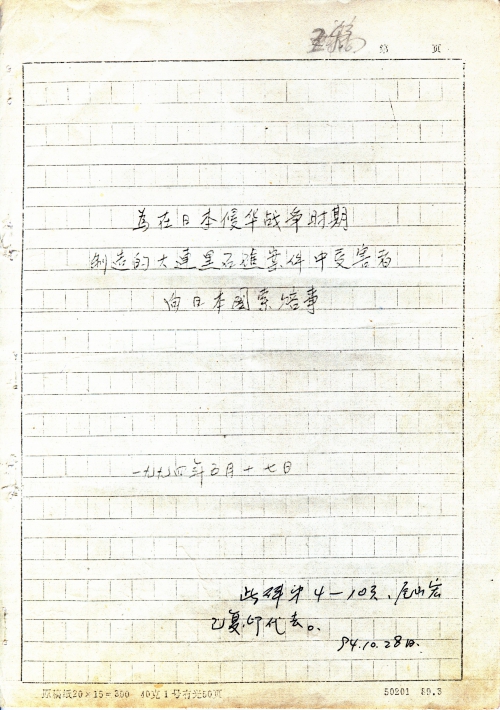 第 页
为在日本侵华战争时期
制造的大连黑石礁案件中受害者
向日本国索赔事
一九九四年五月十七日
此碑第4—10页、尾山宏
已复印代去。
94.10.28日.
原稿纸20×15=300 40克1号有光50页
50201 89.3